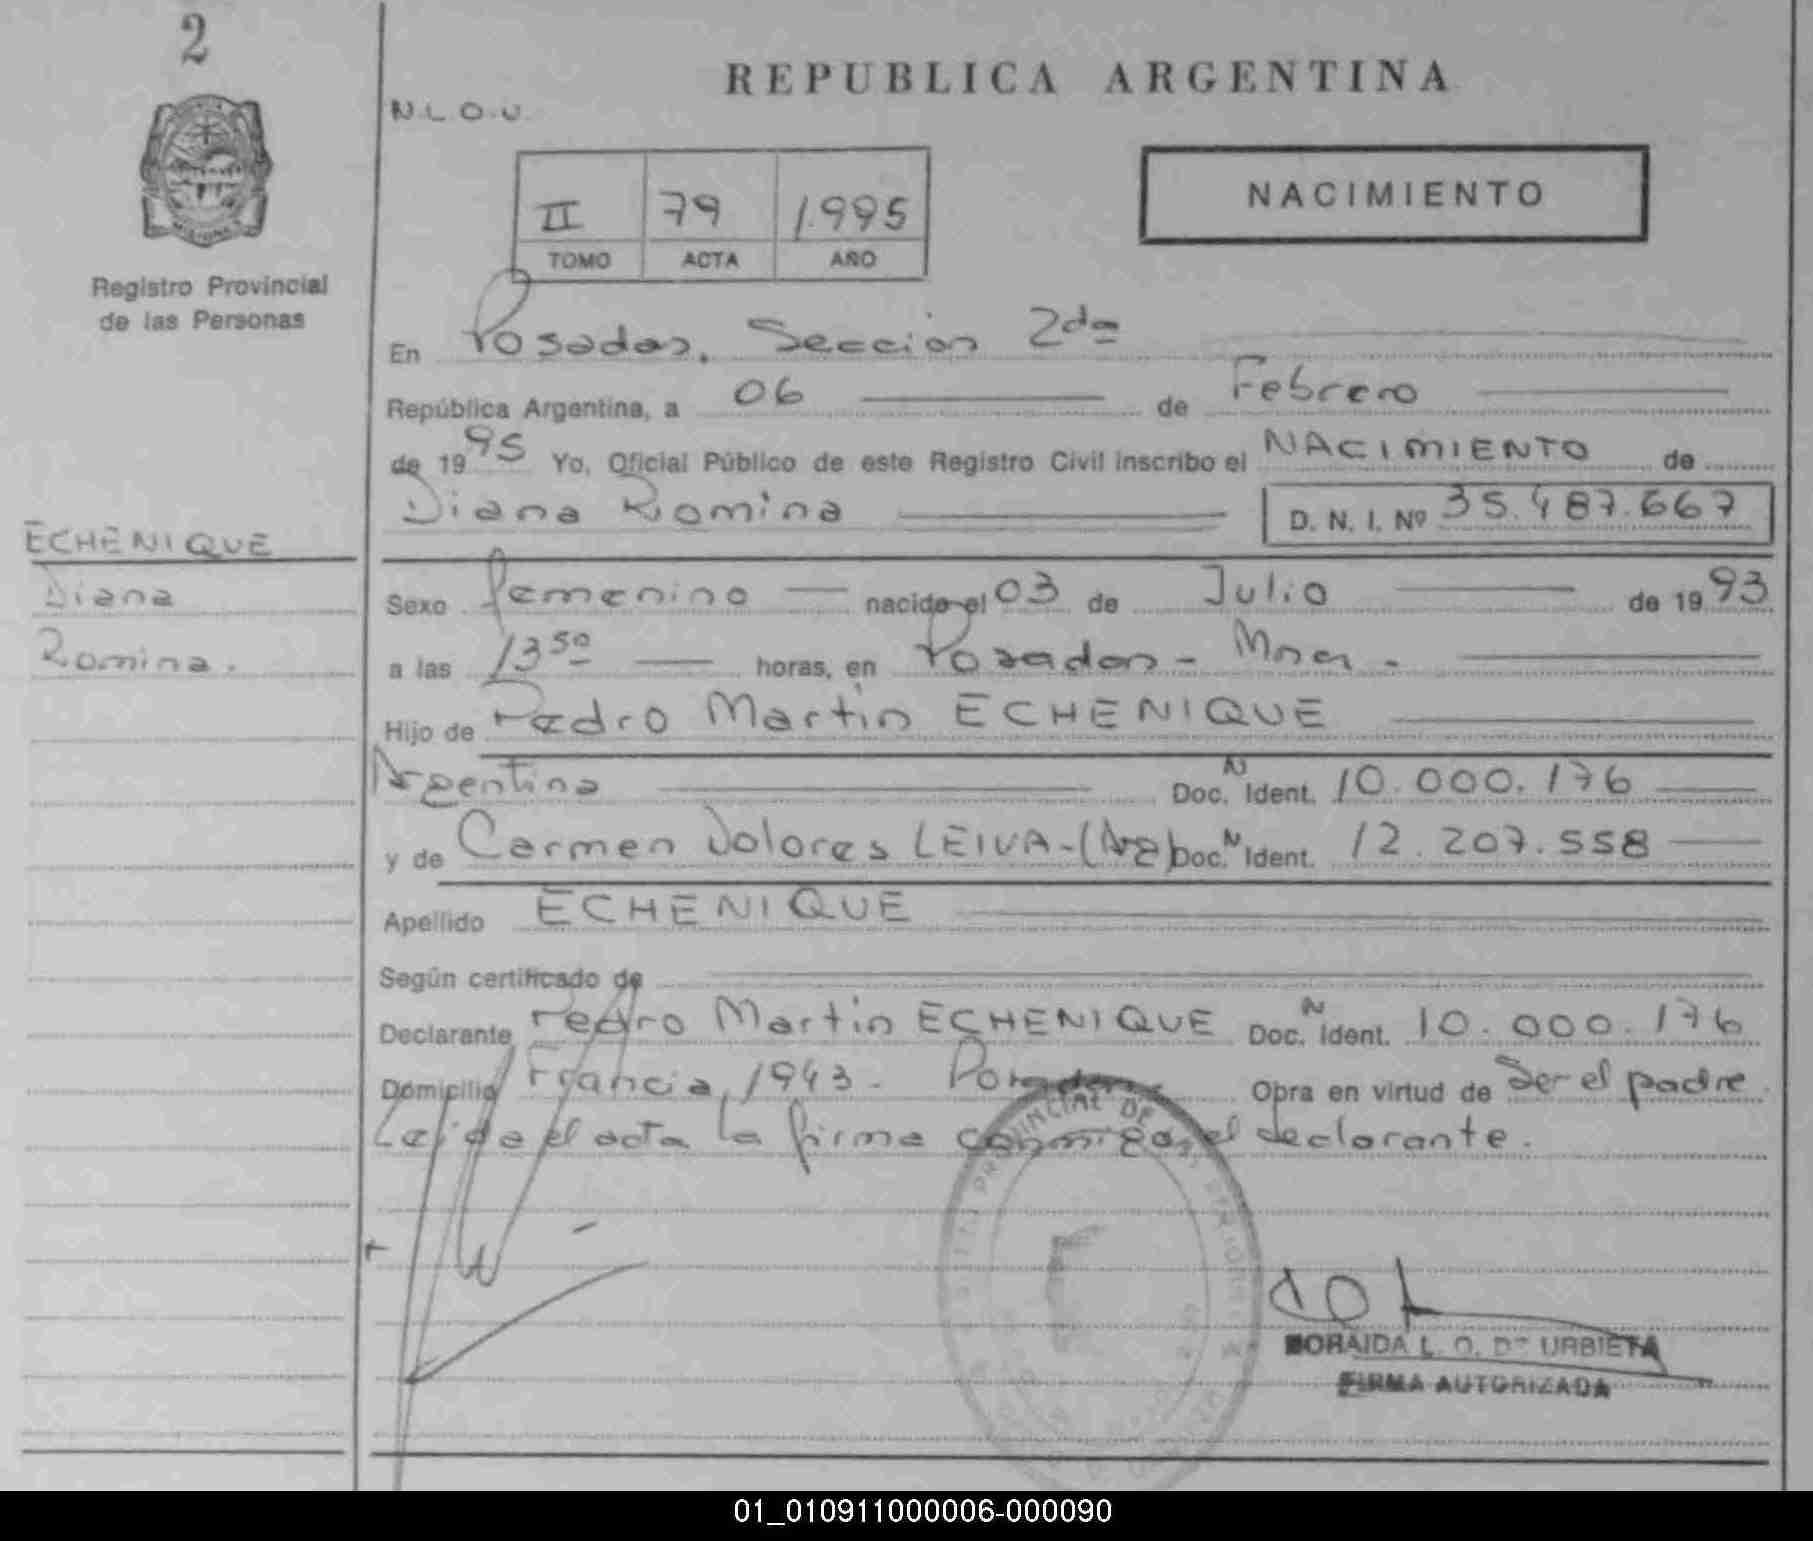 2
REPUBLICA ARGENTINA
N.L.O.U.
II 79 1.995
TOMO ACTA AÑO
NACIMIENTO
Registro Provincial
de las Personas
En Posadas, Sección 2da
República Argentina, a 06 de Febrero
de 1995 Yo, Oficial Público de este Registro Civil inscribo el NACIMIENTO de
Diana Romina D. N. I. Nº 35.487.667
ECHENIQUE
Diana
Romina.
Sexo femenino nacido el 03 de Julio de 1993
a las 13 50 horas, en Posadas - Mnes.
Hijo de Pedro Martin ECHENIQUE
Argentina Doc. N Ident. 10.000.176
y de Carmen Dolores LEIVA-(Arg) Doc. N Ident. 12.207.558
Apellido ECHENIQUE
Según certificado de
Declarante Pedro Martin ECHENIQUE Doc. N Ident. 10.000.176
Domicilio Francia, 1943. Posadas Obra en virtud de Ser el padre.
Leida el acta la firma conmigo, el declarante.
PROVINCIAL DE
L. O. DE URBIETA
FIRMA AUTORIZADA
01_010911000006-000090